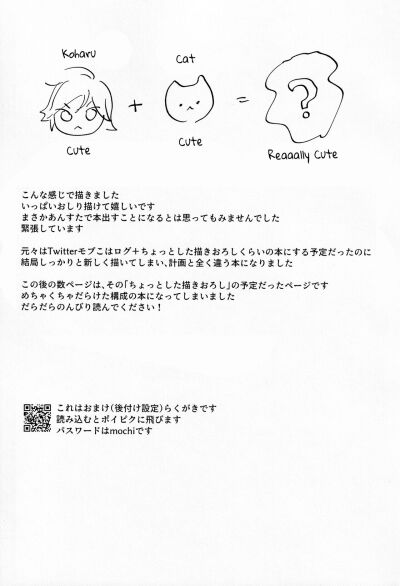 Koharu
Cat
+
=
?
Cute
Cute
Reaaally Cute
こんな感じで描きました
いっぱいおしり描けて嬉しいです
まさかあんすたで本出すことになるとは思ってもみませんでした
緊張しています
元々はTwitterモブこはログ＋ちょっとした描きおろしくらいの本にする予定だったのに
結局しっかりと新しく描いてしまい、計画と全く違う本になりました
この後の数ページは、その「ちょっとした描きおろし」の予定だったページです
めちゃくちゃだらけた構成の本になってしまいました
だらだらのんびり読んでください！
これはおまけ(後付け設定)らくがきです
読み込むとポイピクに飛びます
パスワードはmochiです